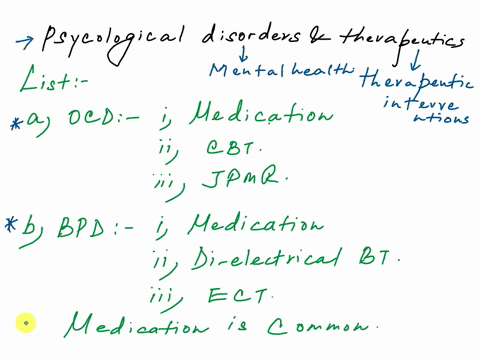 → Psycological disorders & therapeutics
Mental health
therapeutic
interve
ntions
List:-
*a, OCD:- i, Medication
ii, CBT.
iii, JPMR.
*b, BPD:- i, Medication
ii, Di-electrical BT.
iii, ECT.
Medication is Common.